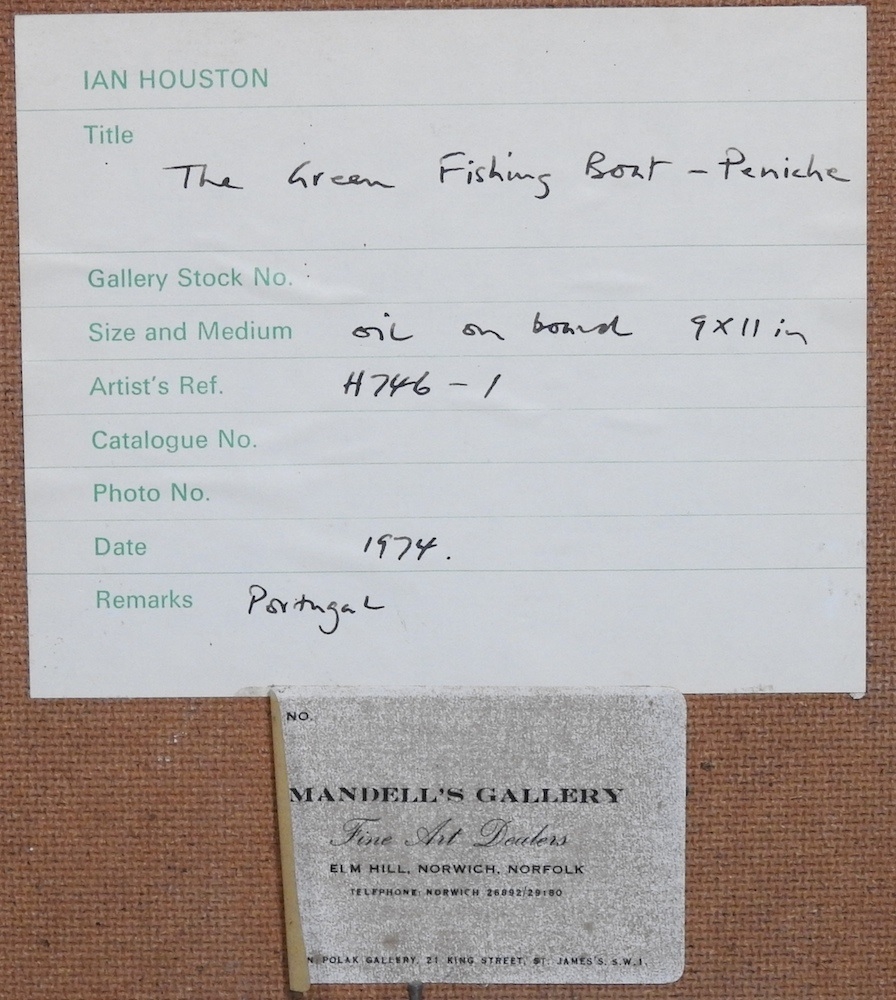 IAN HOUSTON
Title
The Green Fishing Boat - Peniche
Gallery Stock No.
Size and Medium oil on board 9X11 in
Artist's Ref. H746-1
Catalogue No.
Photo No.
Date 1974.
Remarks Portugal
NO.
MANDELL'S GALLERY
Fine Art Dealers
ELM HILL, NORWICH, NORFOLK
TELEPHONE: NORWICH 26892/29180
POLAK GALLERY, 21 KING STREET, ST. JAMES'S. S.W.1.